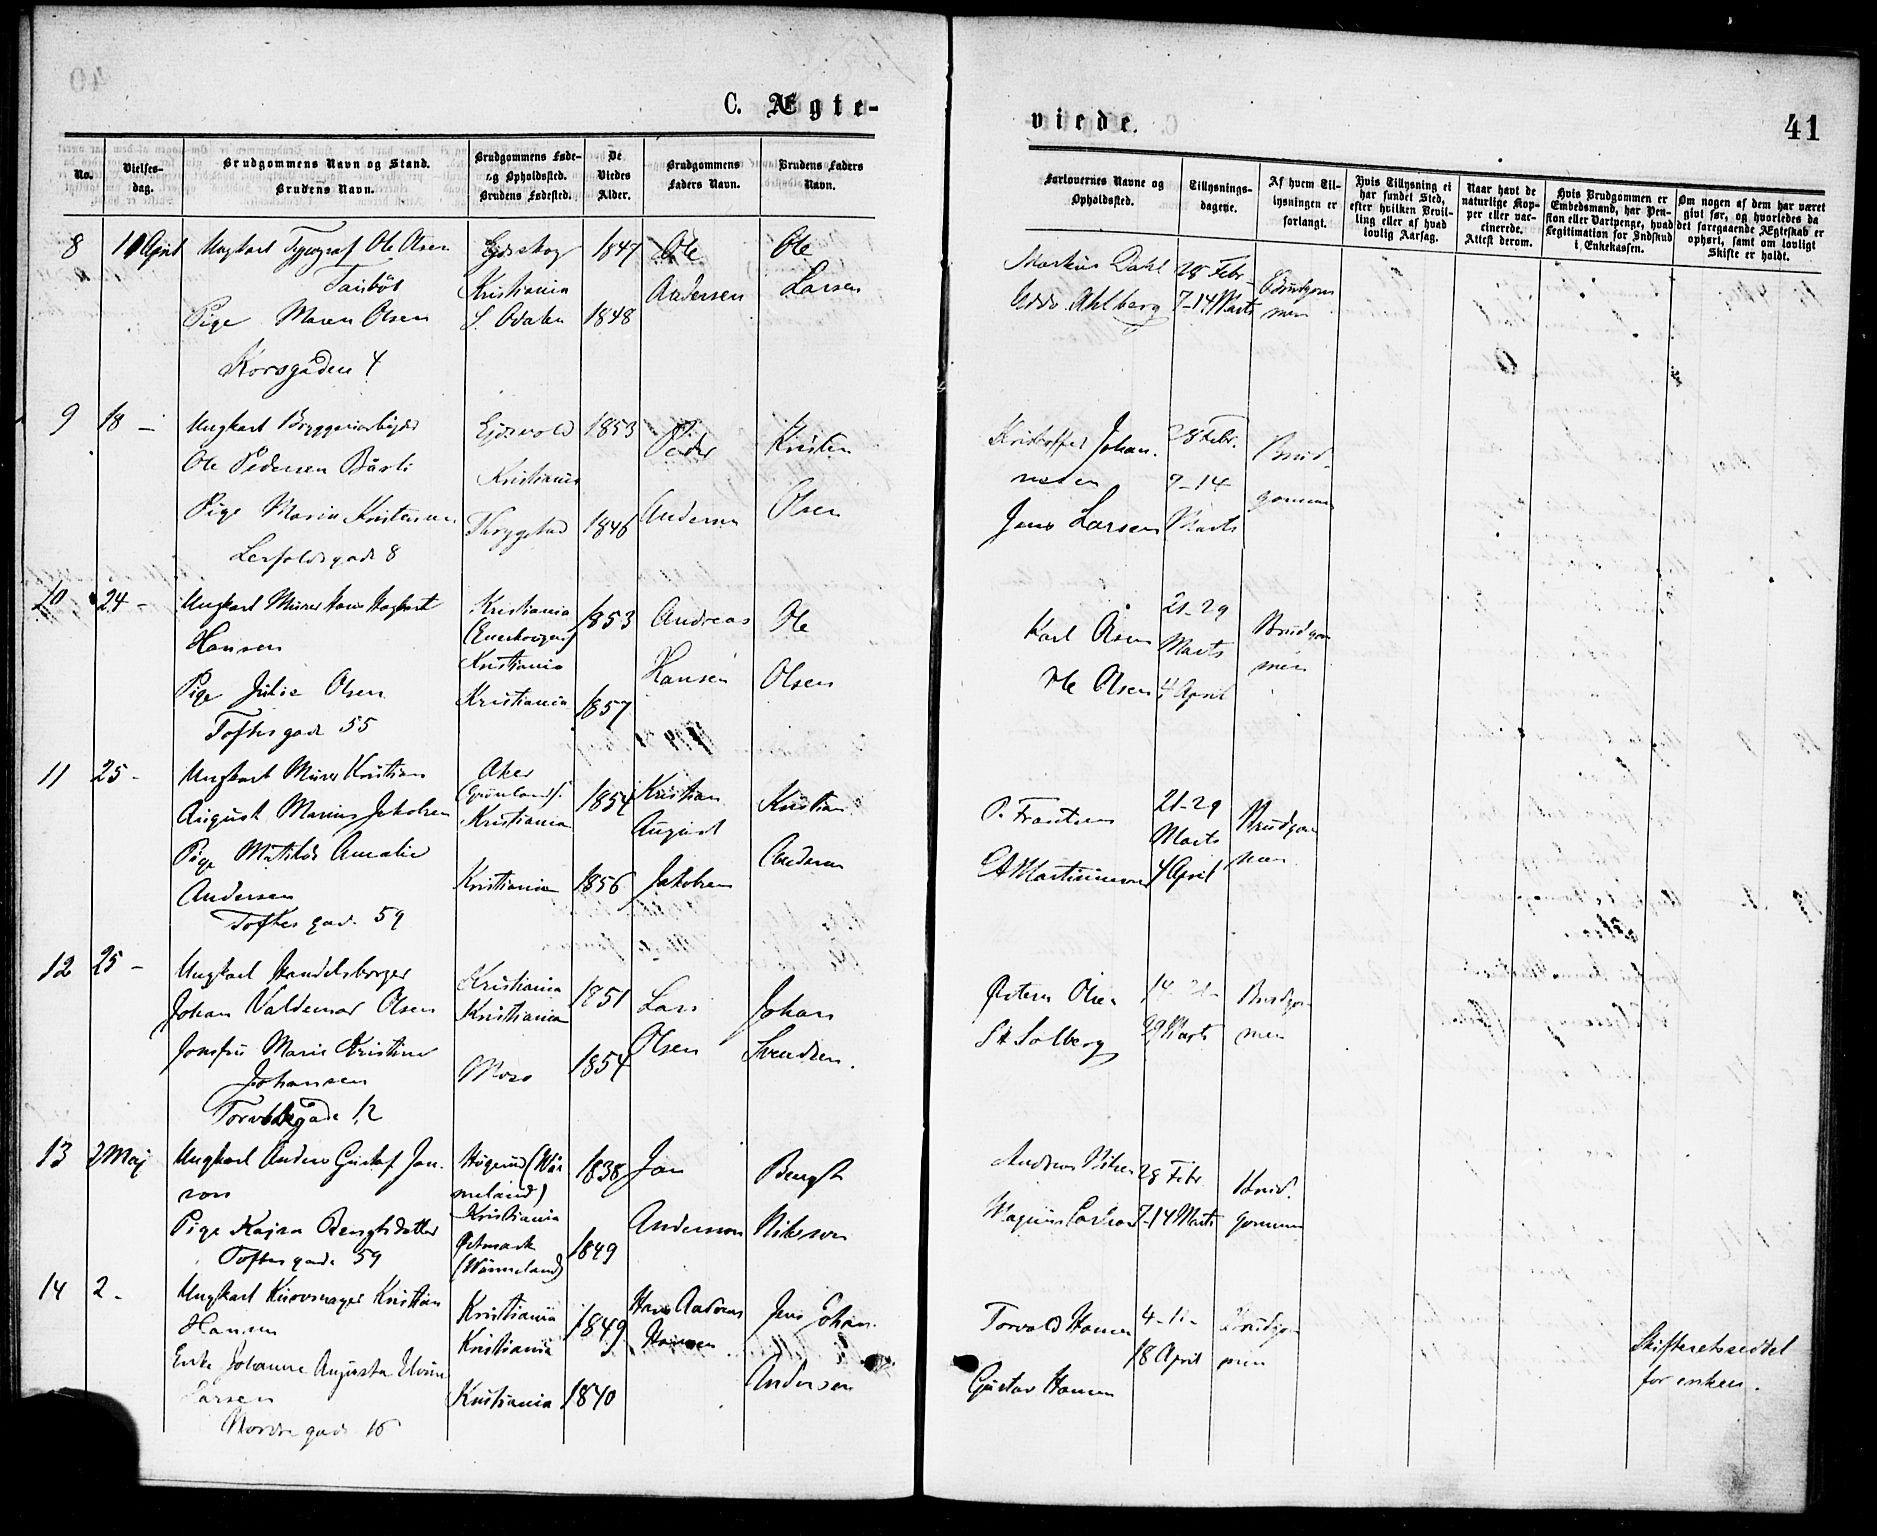 C. Ægte-
viede.
41
No.
Vielses-
dag.
Brudgommens Navn og Stand.
Brudens Navn.
Brudgommens Føde-
og Opholdssted.
Brudens Fødested.
De
Viedes
Alder.
Brudgommens
Faders Navn.
Brudens Faders
Navn.
Forlovernes Navne og
Opholdssted.
Tillysnings-
dagene.
Af hvem Til-
lysningen er
forlangt.
Hvis Tillysning ei
har fundet Sted,
efter hvilken Bevil-
ling eller af hvad
lovlig Aarsag.
Naar havt de
naturlige Kop-
per eller vac-
cinerede.
Attest derom.
Hvis Brudgommen er
Embedsmand, har Pen-
sion eller Vartpenge, hvad
Legitimation for Indskud
i Enkekassen.
Om nogen af dem har været
givt før, og hvorledes da
det foregaaende Ægteskab er
ophørt, samt om lovligt
Skifte er holdt.
8
April
Ungkarl Typograf Ole Olsen
Pige Maren Olsen
Korsgaden 4
Ejdskog
Kristiania
S. Odalen
1847
1848
Ole
Andersen
Ole
Larsen
Markus Dahl
Ahlberg
28 Febr
7-14 Marts
Brudgom
men
9
18 -
Ungkarl Bryggeriarbejder
Ole Pedersen
Pige Maria Kristensen
gade 8
Ejdsvold
Kristiania
Trygstad
1853
1846
Peder
Andersen
Kristen
Olsen
Kristoffer Johan.
nesen
Jens Larsen
28 Febr.
7-14
Marts
Brud-
gommen
10
24 -
Ungkarl Murer Hans Hagbart
Hansen
Pige Julie Olsen
Toftesgade 55
Kristiania
Kristiania
Kristiania
1853
1857
Andreas
Hansen
Ole
Olsen
Karl Olsen
Ole Olsen
21-29
Marts
4 April
Brudgom
men
11
25 -
Ungkarl Murer Kristian
August Marius Jakobsen
Pige Matilde Amalie
Andersen
Toftes gade 59
Aker
(Grønland)
Kristiania
Kristiania
1854
1856
Kristian
August
Jakobsen
Kristian
Andersen
P. Frantsen
A Martinsen
21-29
Marts
4 April
Brudgom
men
12
25 -
Ungkarl Handelsborger
Johan Valdemar Olsen
Jomfru Marie Kristine
Johansen
gade 12
Kristiania
Kristiania
Moss
1851
1854
Lars
Olsen
Johan
Svendsen.
Petersen Olsen
Solberg
14-21-
29 Marts
Brudgom
men
13
2 Maj
Ungkarl Anders Gustaf Jan-
son
Pige Kajsa Bengtsdatter
Toftes gade 59
Högerud (Wär
meland)
Kristiania
Östmark
(Wärmeland)
1838
1849
Jan
Anderson
Bengt
Nilsson
Andreas Nilsen
Magnus Larsson
28 Febr
7-14 Marts
Brud-
gommen
14
2 -
Ungkarl Kurvmager Kristian
Hansen
Enke Johanne Augusta Elvine
Larsen
Nordre gade 16
Kristiania
Kristiania
Kristiania
1849
1840
Hans Andreas
Hansen
Jens Johan
Andersen
Torvald Hansen
Gustav Hansen
4-11-
18 April
Brudgom
men
Skifteretsseddel
for enken.